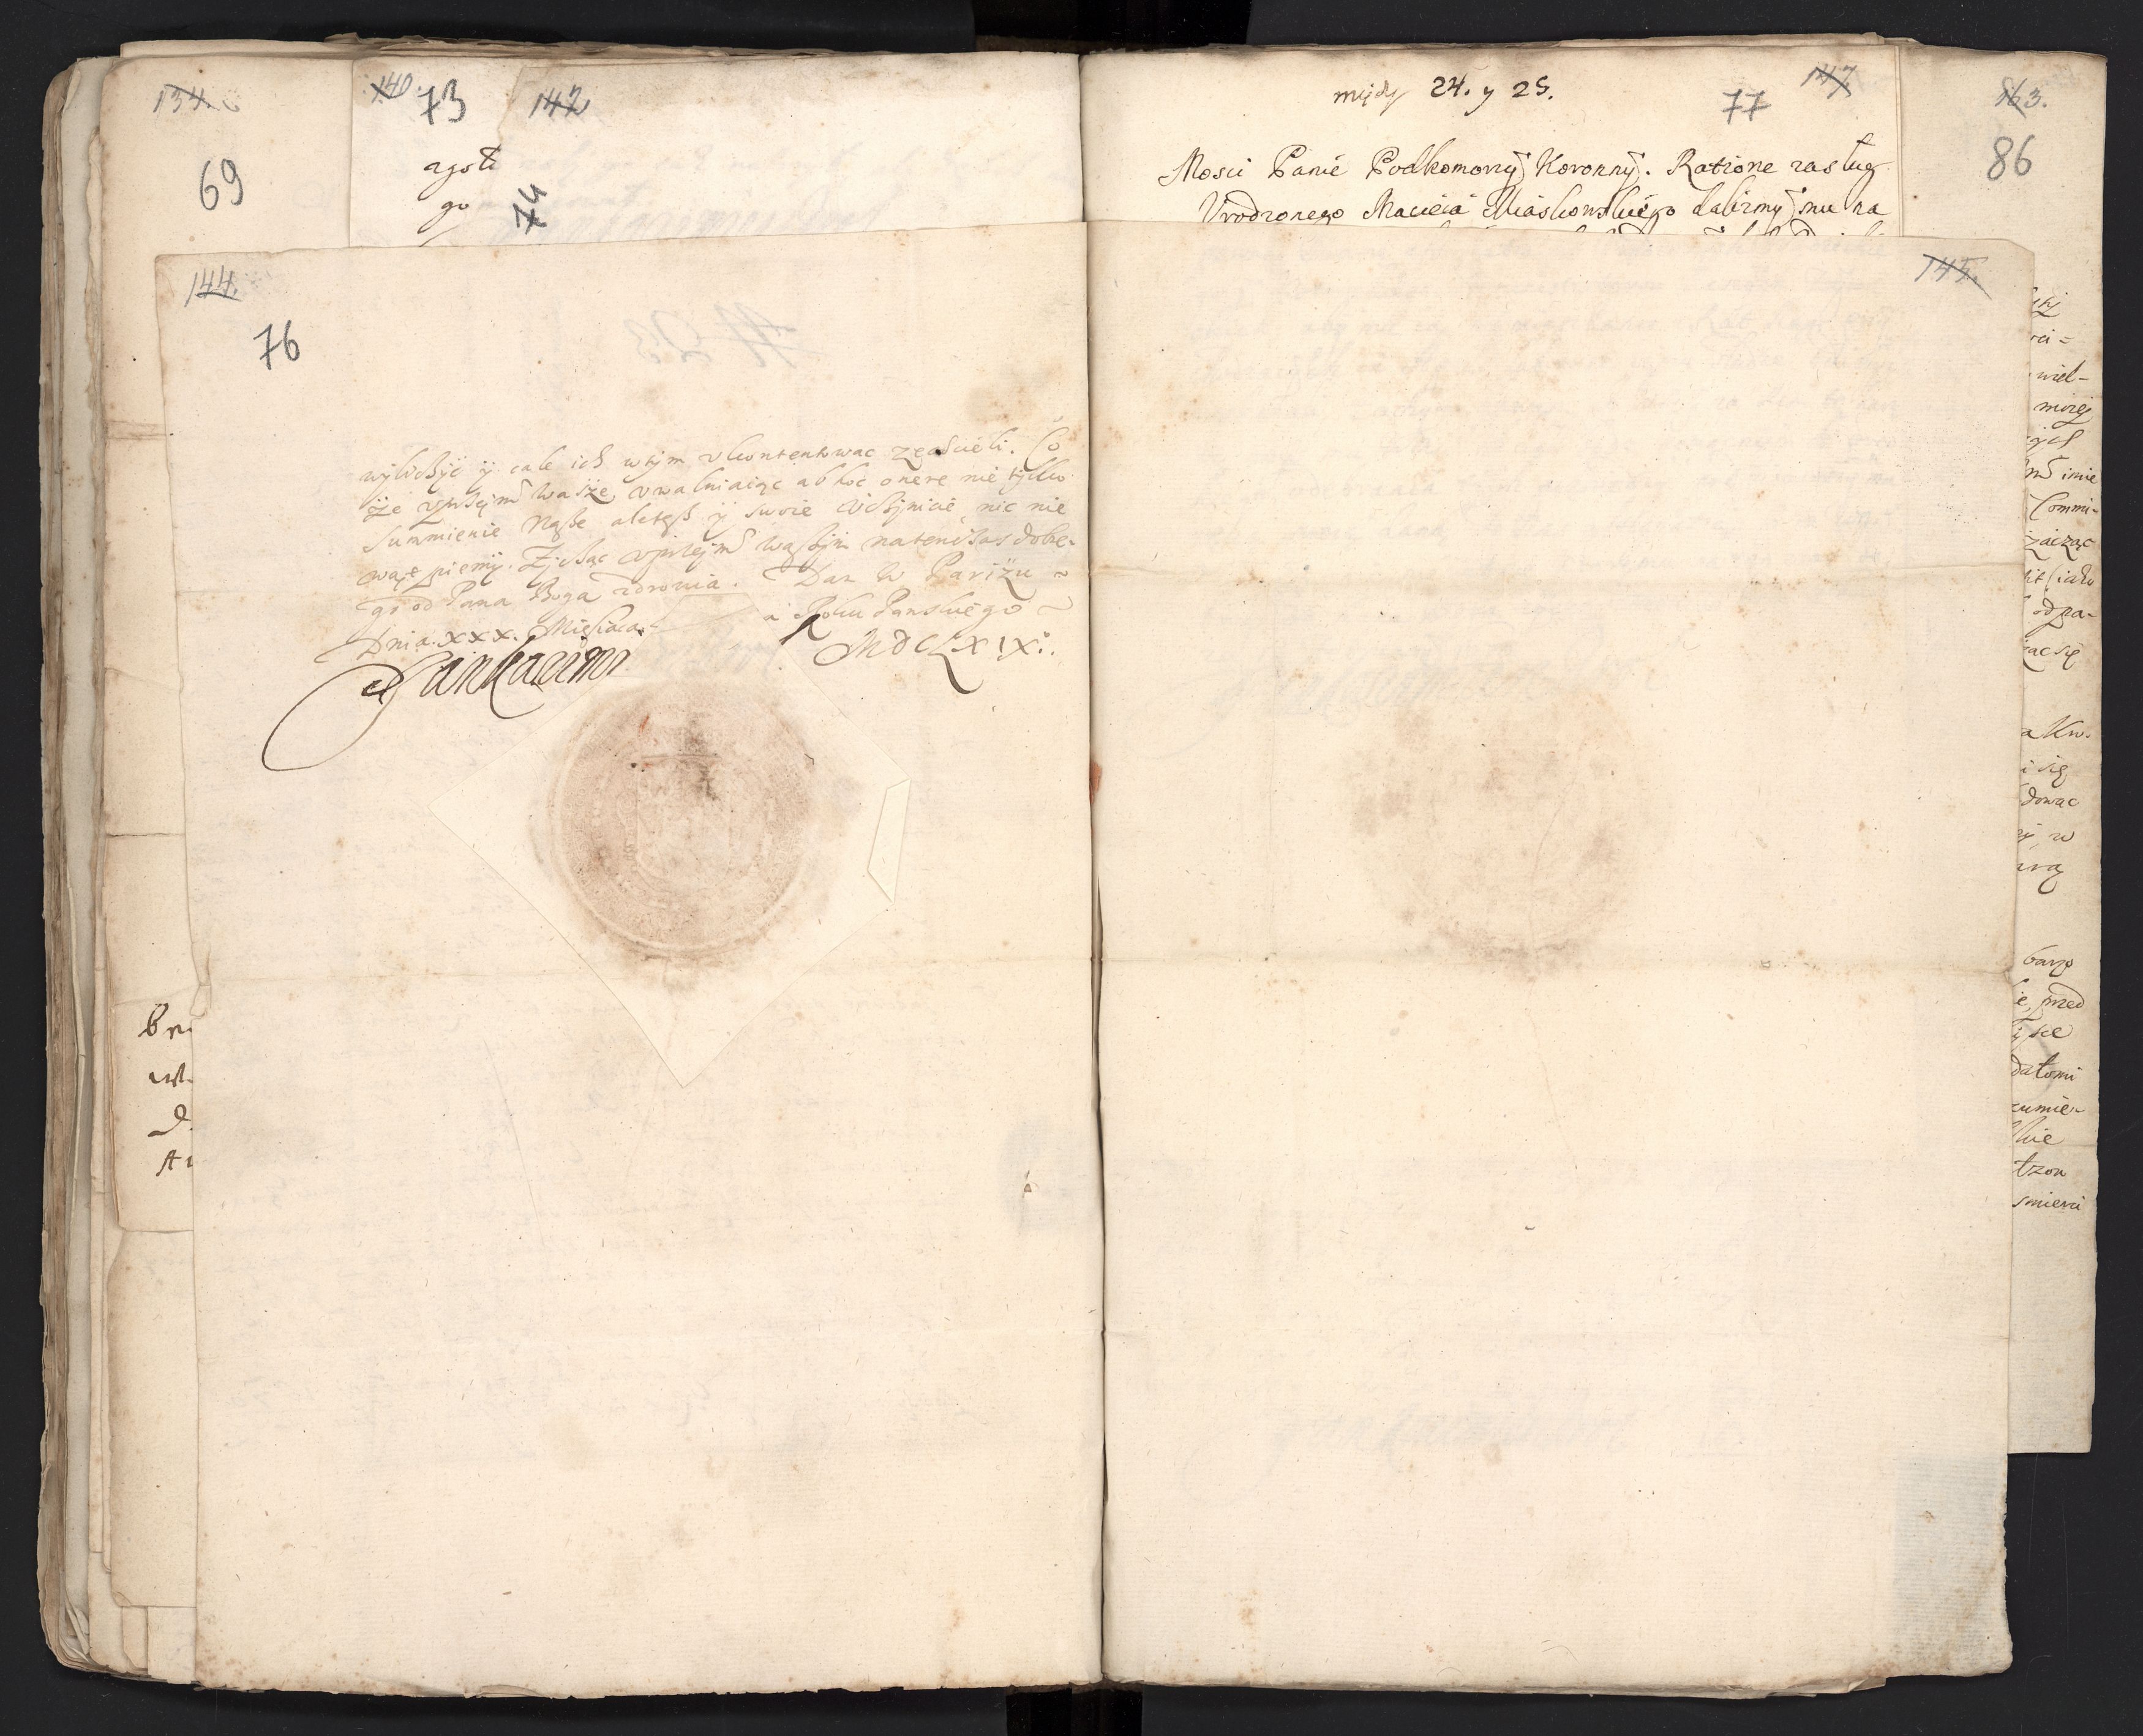 134.
69
140.
73
142
agosti
go
74
144.
76
wyliczyć ÿ cale ich wtÿm vkontentować zechcieli. Co
że vprzejmć Wasze, vwalniaiąc ab hoc onere nie tÿlko
Summienie Nasze aletesz ÿ swoie vczÿnicie, nic nie
wątpiemÿ. Zÿcząc vprzejmć Waszÿm natenczas dobre-
go od Pana Boga zdrowia. Dan w Parÿżu
Dnia XXX. Miesiąca Roku Panskiego
MDCLXIX.
Jan Kazimir
między 24. y 25.
77
147
Mosci Panie Podkomorzÿ Koronnÿ. Ratione zasług
Vrodzonego Macieia Miaskowskiego dalismÿ mu na
145.
163.
86
wiel-
imie
Commi-
zacząc
odpa-
dowac
barzo
przed
datomi
zumie-
smierci